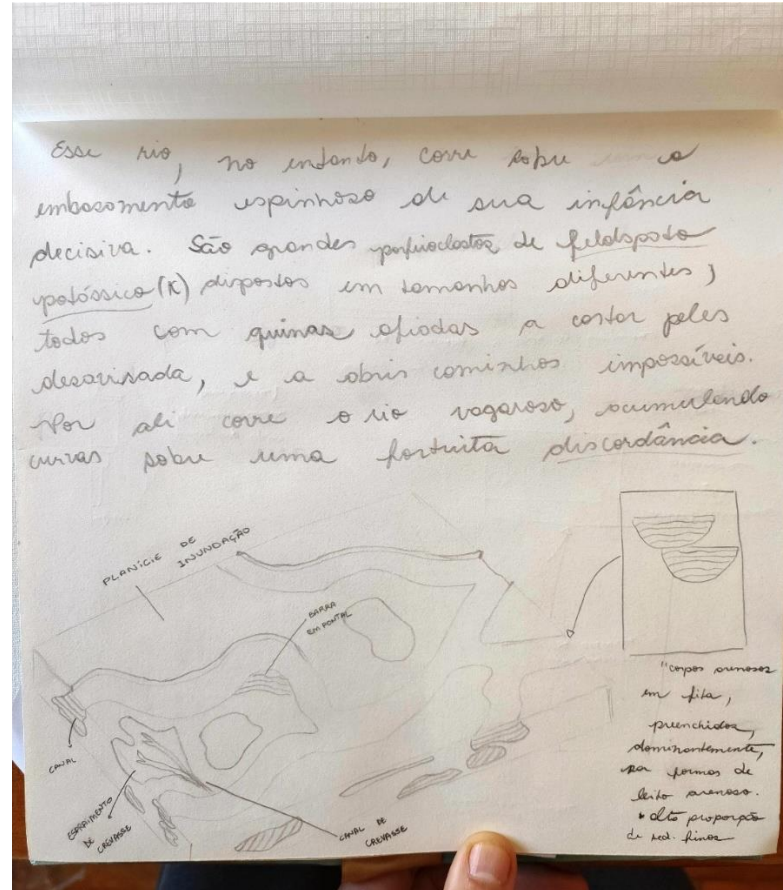 Esse rio, no entanto, corre sobre o
embasamento espinhoso de sua infância
decisiva. São grandes porfiroclastos de feldspato
potássico (K) dispostos em tamanhos diferentes,
todos com quinas afiadas a cortar peles
desavisada, e a abrir caminhos impossíveis.
Por ali corre o rio vagaroso, acumulando
curvas sobre uma fortuita discordância.
PLANÍCIE DE
INUNDAÇÃO
BARRA
EM PONTAL
CANAL
ESPRAIAMENTO
DE CREVASSE
CANAL DE
CREVASSE
"corpos arenosos
em fita,
preenchidos,
dominantemente,
por formas de
leito arenoso.
• alta proporção
de sed. finos